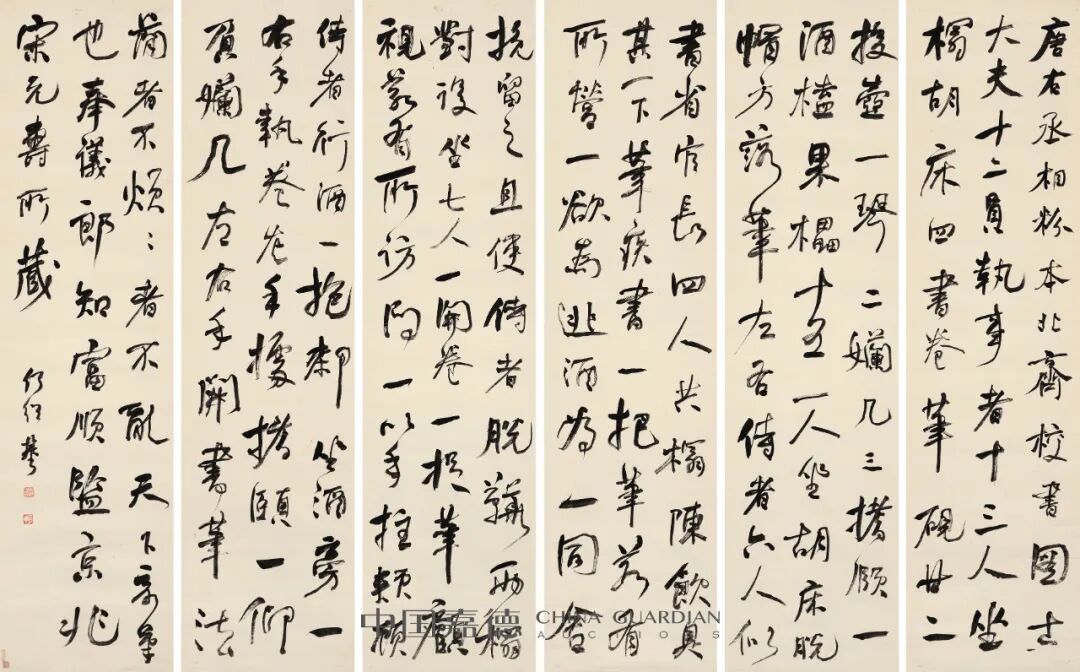 唐右丞相粉本北齊校書圖士
大夫十二員執事者十三人坐
榻胡床四書卷筆硯廿二
投壺一琴二孏几三搘頤一
酒榼果櫑十五一人坐胡床脫
帽方落筆左右侍者六人似
書省官長四人共榻陳飲具
其一下筆疾書一把筆若有
所營一欲為逃酒為一同舍
挽留之且使侍者脫鞾兩榻
對設坐七人一開卷一捉筆顧
視若有所訪問一以手拄頰顧
侍者行酒一抱厀坐酒旁一
右手執卷左手據搘頤一仰
負孏几左右手開書筆法
簡者不煩〻者不亂天下奇筆
也奉議郎知富順監京兆
宋元壽所藏
中国嘉德 CHINA GUARDIAN
AUCTIONS